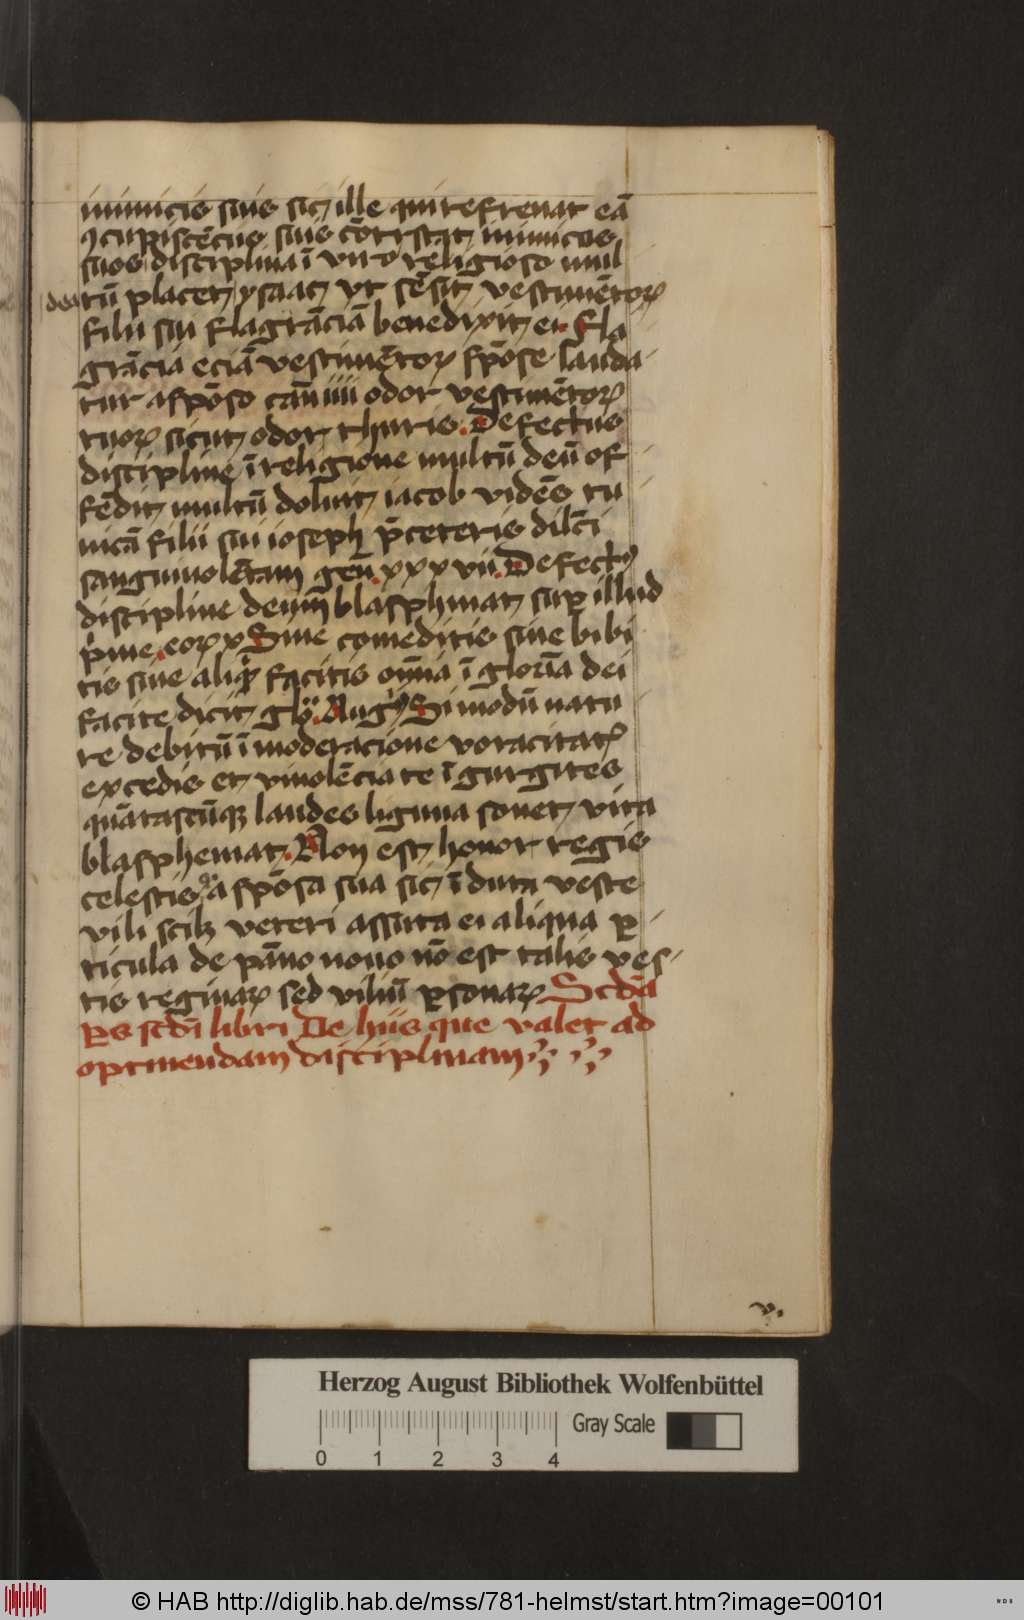 inimicis suis sic ille qui refrenat eā
ꝯcupiscēcus suis cōtristat inimicos
suos disciplina ī viro religioso mul
dea tū placet ysaac vt sēsit vestimētoꝝ
filii sui flagrāciā benedixit ei. Fla
grācia eciā vestimētoꝝ spōse lauda
tur a spōso cāñ iiii odor vestimētoꝝ
tuoꝝ sicut odor thuris. Defectus
discipline ī religione multū deū of
fēdit multū doluit iacob vidēs tu
nicā filii sui ioseph p̄ ceteris dilc̄i
sanguinolētam geñ. xxxvii. Defectꝰ
discipline deum blasphmat suꝑ illud
p̄me. coꝝ x Siue comeditis siue bibi
tis siue aliqd̄ facitis om̄ia ī gloriā dei
facite dicit glo. Augꝰ Si modū natu
re debitū ī moderacione voracitatꝭ
excedis et vinolēcia te īgurgites
quātascūqꝫ laudes ligwa sonet vita
blasphemat. Non est honor regis
celestis ꝙ a spōsa sua sic īduta veste
vili scilꝫ veteri assuta ei aliqua ꝑ
ticula de pāno nouo nō est talis ves
tis reginaꝝ sed viliū ꝑsonaꝝ Scd̄a
ꝑs scd̄i libri De hiis que valet ad
optinendam disciplinam
v.
Herzog August Bibliothek Wolfenbüttel
Gray Scale
0 1 2 3 4
© HAB http://diglib.hab.de/mss/781-helmst/start.htm?image=00101